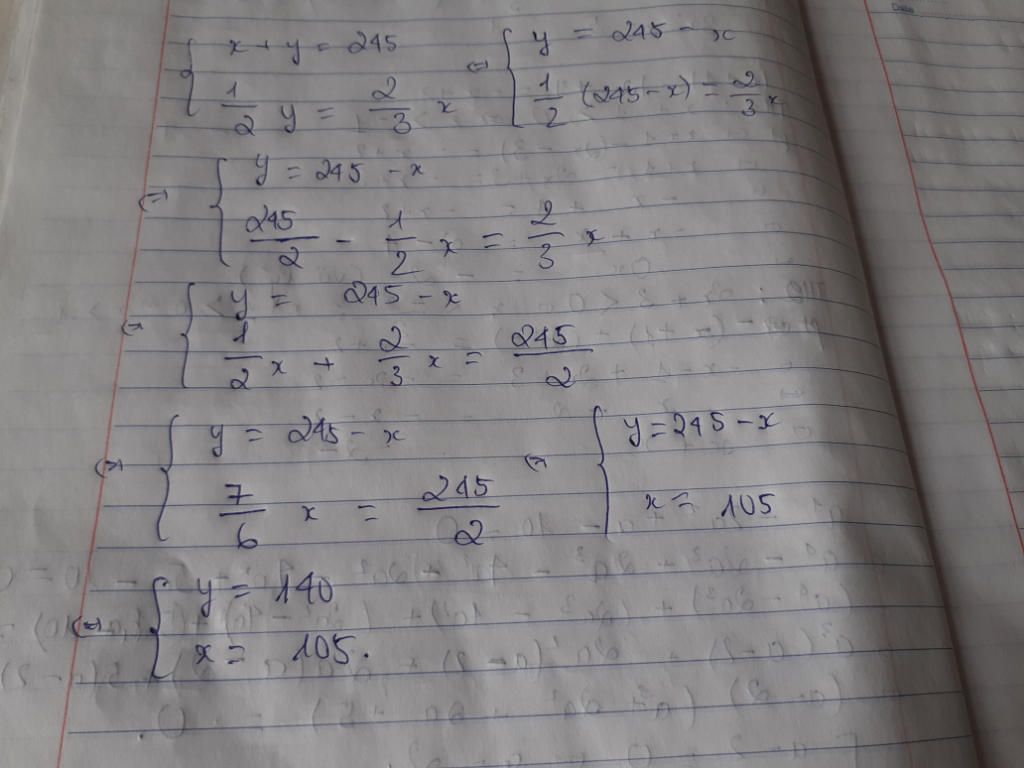 { x + y = 245 ⇔ { y = 245 - x
1/2 y = 2/3 x 1/2 (245 - x) = 2/3 x
⇔ { y = 245 - x
245/2 - 1/2 x = 2/3 x
⇔ { y = 245 - x
1/2 x + 2/3 x = 245/2
⇔ { y = 245 - x ⇔ { y = 245 - x
7/6 x = 245/2 x = 105
⇔ { y = 140
x = 105.